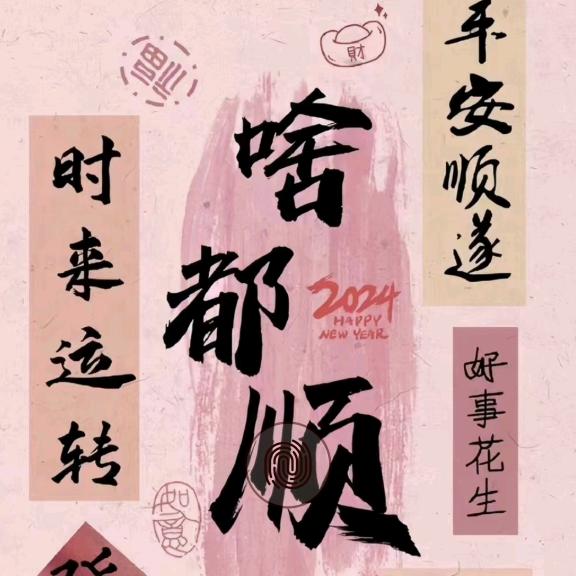 福
財
平安顺遂
啥都顺
时来运转
2024
HAPPY
NEW YEAR
好事花生
如意